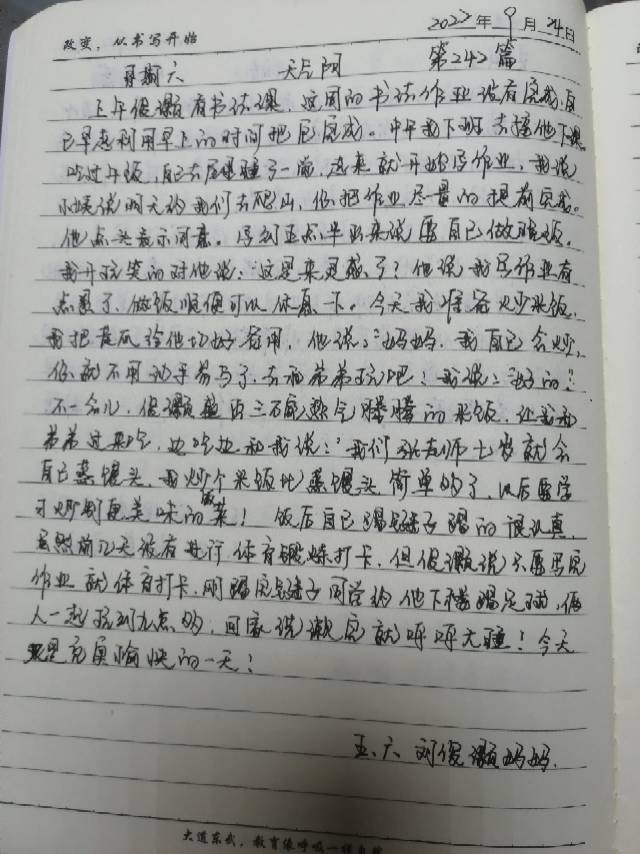 改变，从书写开始 2022年9月24日
星期六 天气阴 第242篇
上午俊灏有书法课，这周的书法作业没有完成，自
己早起利用早上的时间把它完成。中午我下班去接他下课，
吃过午饭，自己去屋里睡了一前，起来就开始写作业，我说
明天约我们去爬山，你把作业尽量的提前完成。
他点头表示同意。写到五点半出来说要自己做晚饭。
我开玩笑的对他说：“这是来灵感了？他说我写作业有
点累了，做饭顺便可以休息一下。今天我准备炒米饭，
我把黄瓜给他切好备用，他说：“妈妈，我自已会炒，
你就不用动手参与了，去和弟弟玩吧！我说：“好的！”
不一会儿，俊灏盛出三碗热气腾腾的米饭，让我和
弟弟过来吃，边吃边和我说：“我们张老师七岁就会
自己蒸馒头，我炒个米饭比蒸馒头简单的了，以后要学
习炒制更美味的饭菜！饭后自已踢毽子踢的很认真，
虽然前几天没有进行体育锻炼打卡，但俊灏说只要写完
作业就体育打卡，刚踢完毽子同学约他下楼踢足球，俩
人一起玩到九点多，回家洗漱完就呼呼大睡！今天
又是充实愉快的一天！
五、六 刘俊灏妈妈.
大道东武，教育像呼吸一样自然